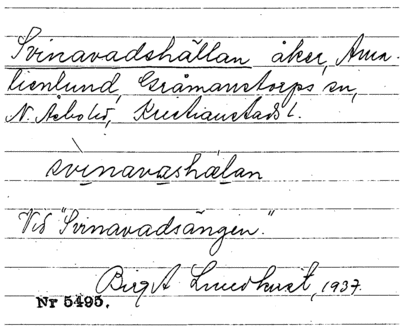 Svinavadshällan åker, Ama-
lienlund, Gråmanstorps sn,
N. Åsbo hd, Kristianstads l.
svìnavashälan
Vid "Svinavadsängen."
Birgit Lundqvist, 1937.
Nr 5495.